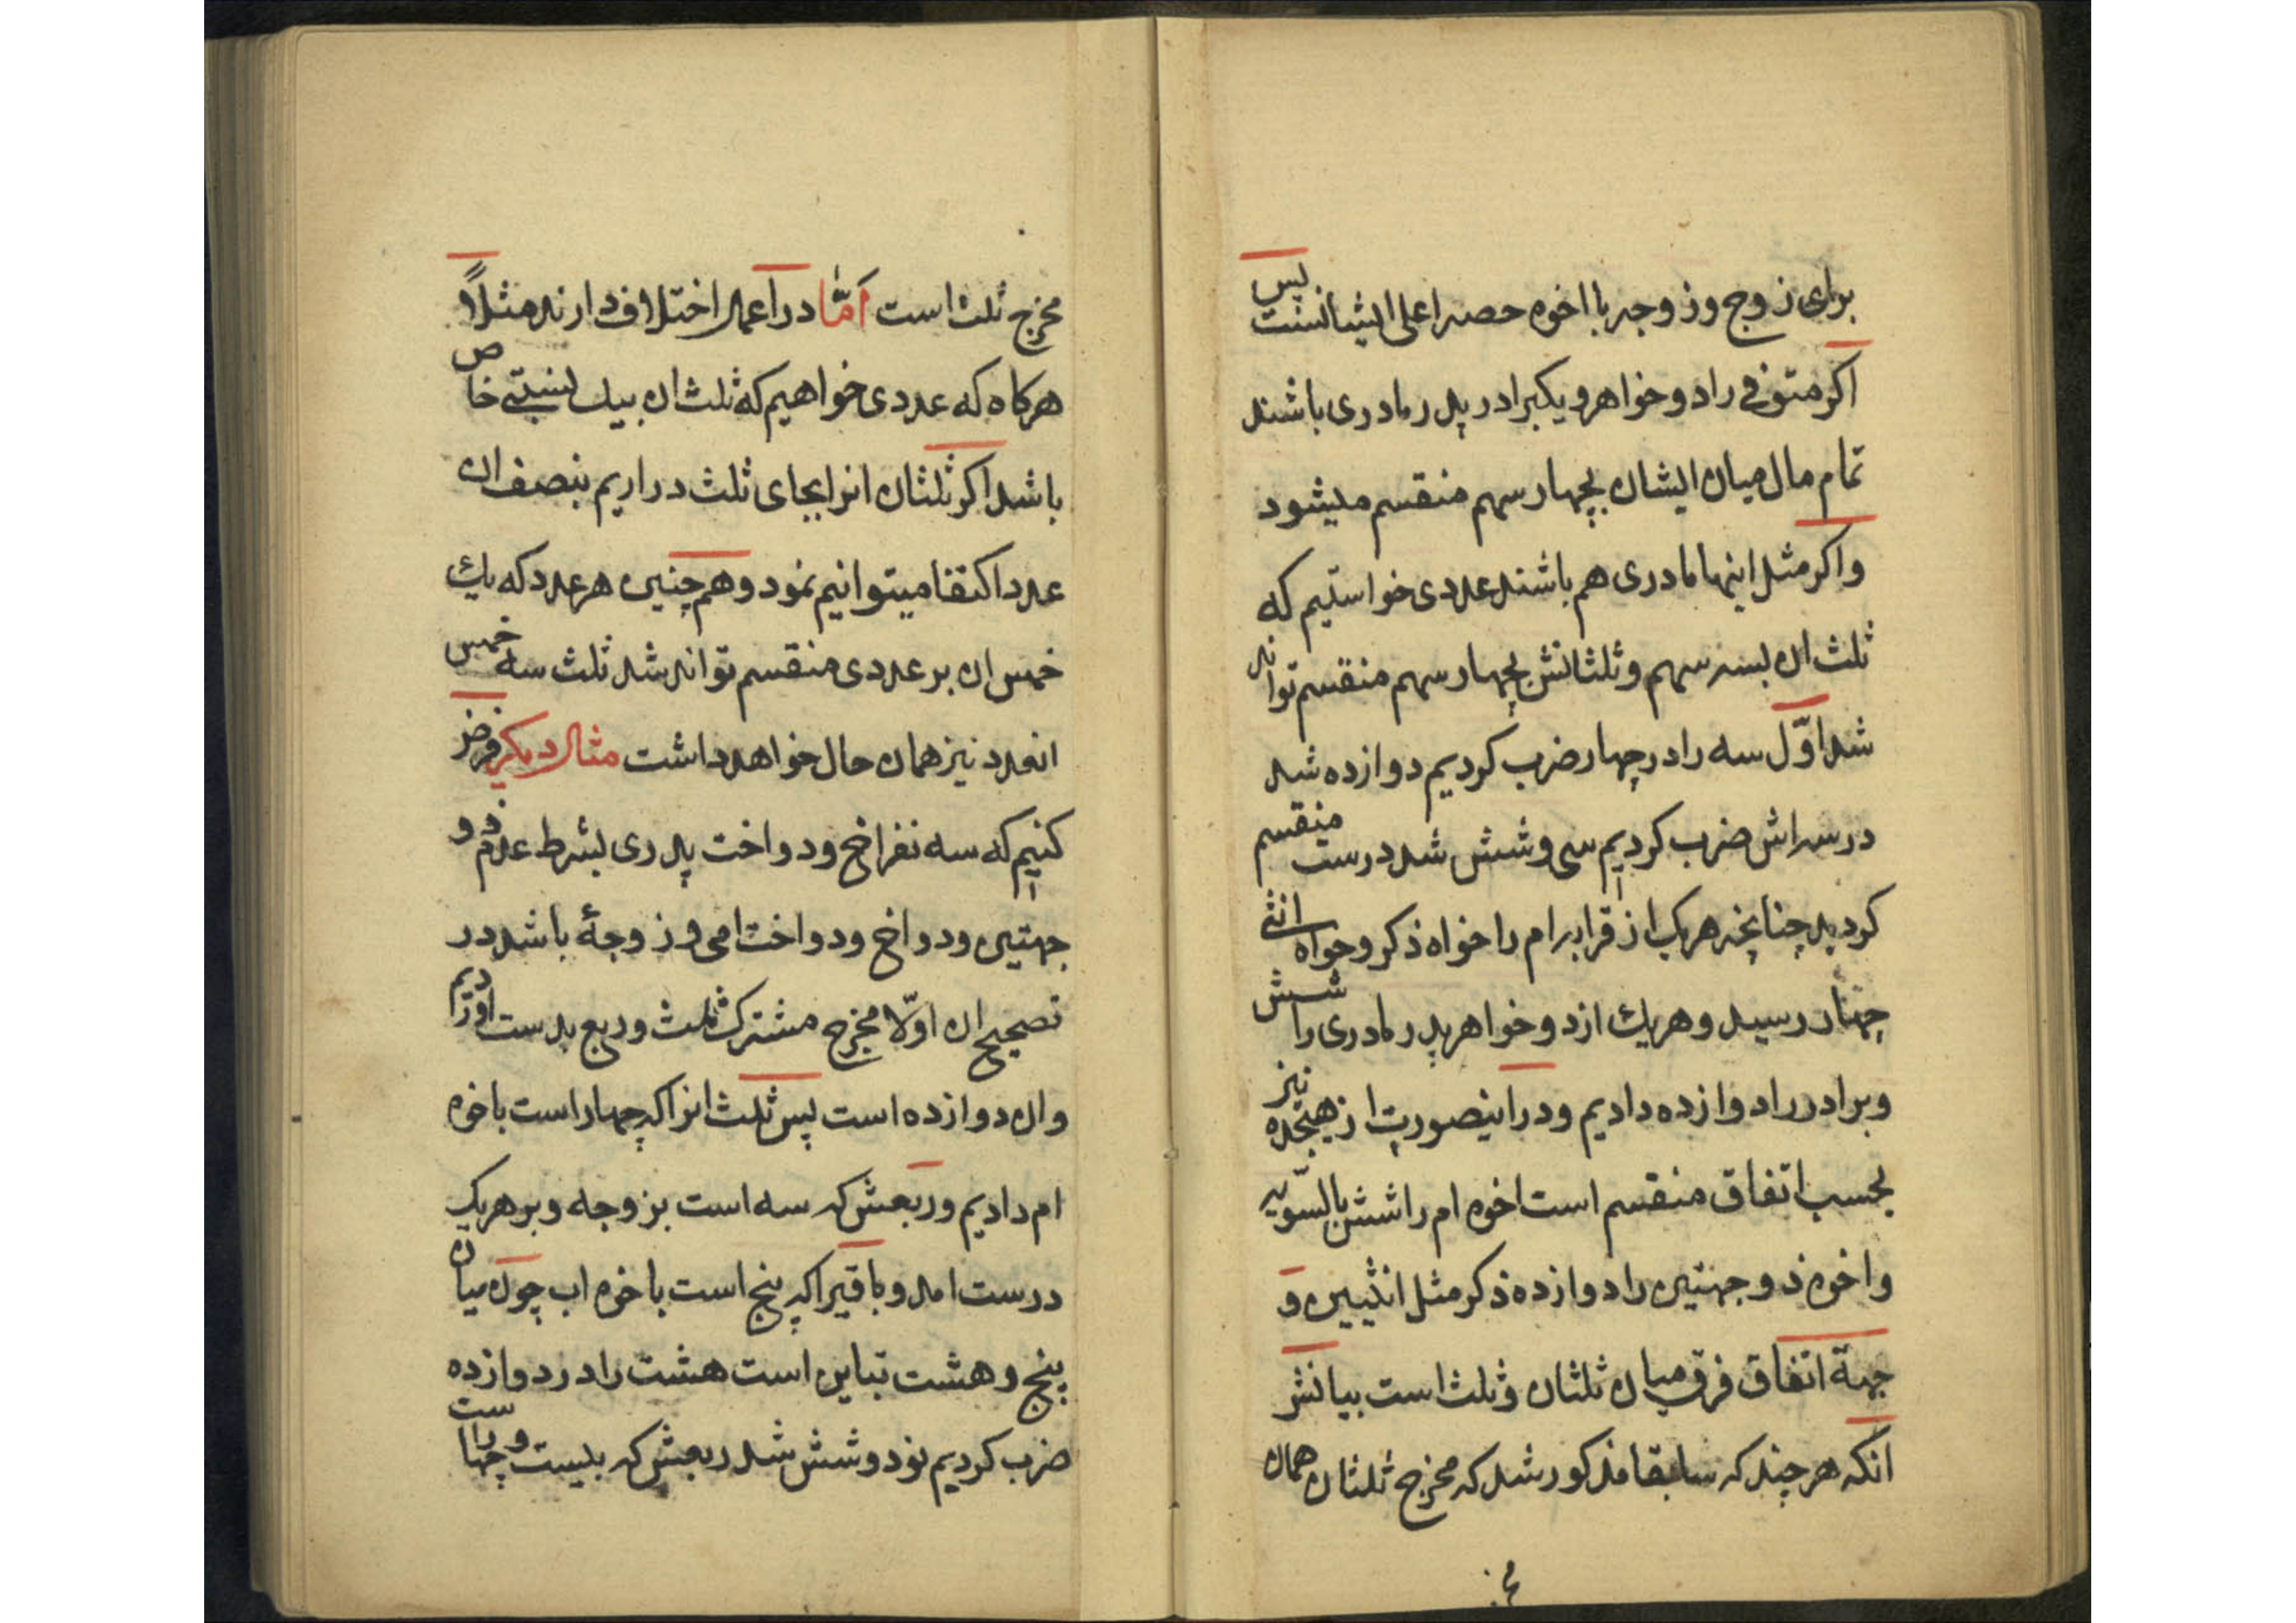 برای زوج و زوجه با اخوه حصه اعلی ایشانست پس
اکر متوفی را دو خواهر و یکبرادر پدر مادری باشند
تمام مال میان ایشان بچهار سهم منقسم میشود
و اکر مثل اینها مادری هم باشند عددی خواستیم که
ثلث ان بسه سهم و ثلثانش بچهار سهم منقسم تواند
شد اوّل سه را در چهار ضرب کردیم دوازده شد
در سه اش ضرب کردیم سی و شش شد درست منقسم
کردید چنانچه هر یک از قرابه ام را خواه ذکر و خواه انثی
چهار رسید و هر یک از دو خواهر پدر مادری را شش
و برادر را دوازده دادیم و در اینصورت از هیجده نیز
بحسب اتفاق منقسم است اخوه ام را شش بالسّویه
و اخوه ذو جهتین را دوازده ذکر مثل انثیین و
جهة اتفاق فرق میان ثلثان و ثلث است بیانش
انکه هر چند که سابقا مذکور شد که مخرج ثلثان همان
مخرج ثلث است امّا در اعمال اختلاف دارند مثلاً
هرکاه که عددی خواهیم که ثلث ان بیک نسبتی خاص
باشد اکر ثلثان انرا بجای ثلث دراریم بنصف ان
عدد اکتفا میتوانیم نمود و هم چنین هر عدد که یک
خمس ان بر عددی منقسم تواند شد ثلث سه خمس
انعدد نیز همان حال خواهد داشت مثال دیکر فرض
کنیم که سه نفر اخ و دو اخت پدری بشرط عدم ذو
جهتین و دو اخ و دو اخت امی و زوجهٔ باشد در
تصحیح ان اوّلا مخرج مشترک ثلث و ربع بدست اوردیم
و ان دوازده است پس ثلث انرا که چهار است باخوه
ام دادیم و ربعش که سه است بزوجه و بر هر یک
درست امد و باقیرا که پنج است باخوه اب چون میان
پنج و هشت تباین است هشت را در دوازده
ضرب کردیم نود و شش شد ربعش که بیست و چهار است